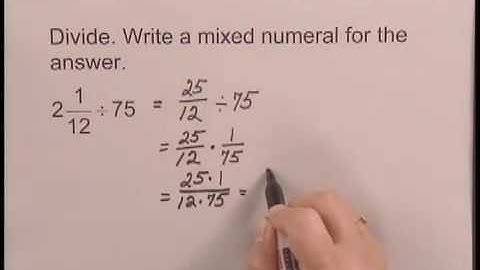 Divide. Write a mixed numeral for the
answer.
2 1/12 ÷ 75 = 25/12 ÷ 75
= 25/12 · 1/75
= 25·1/12·75 =